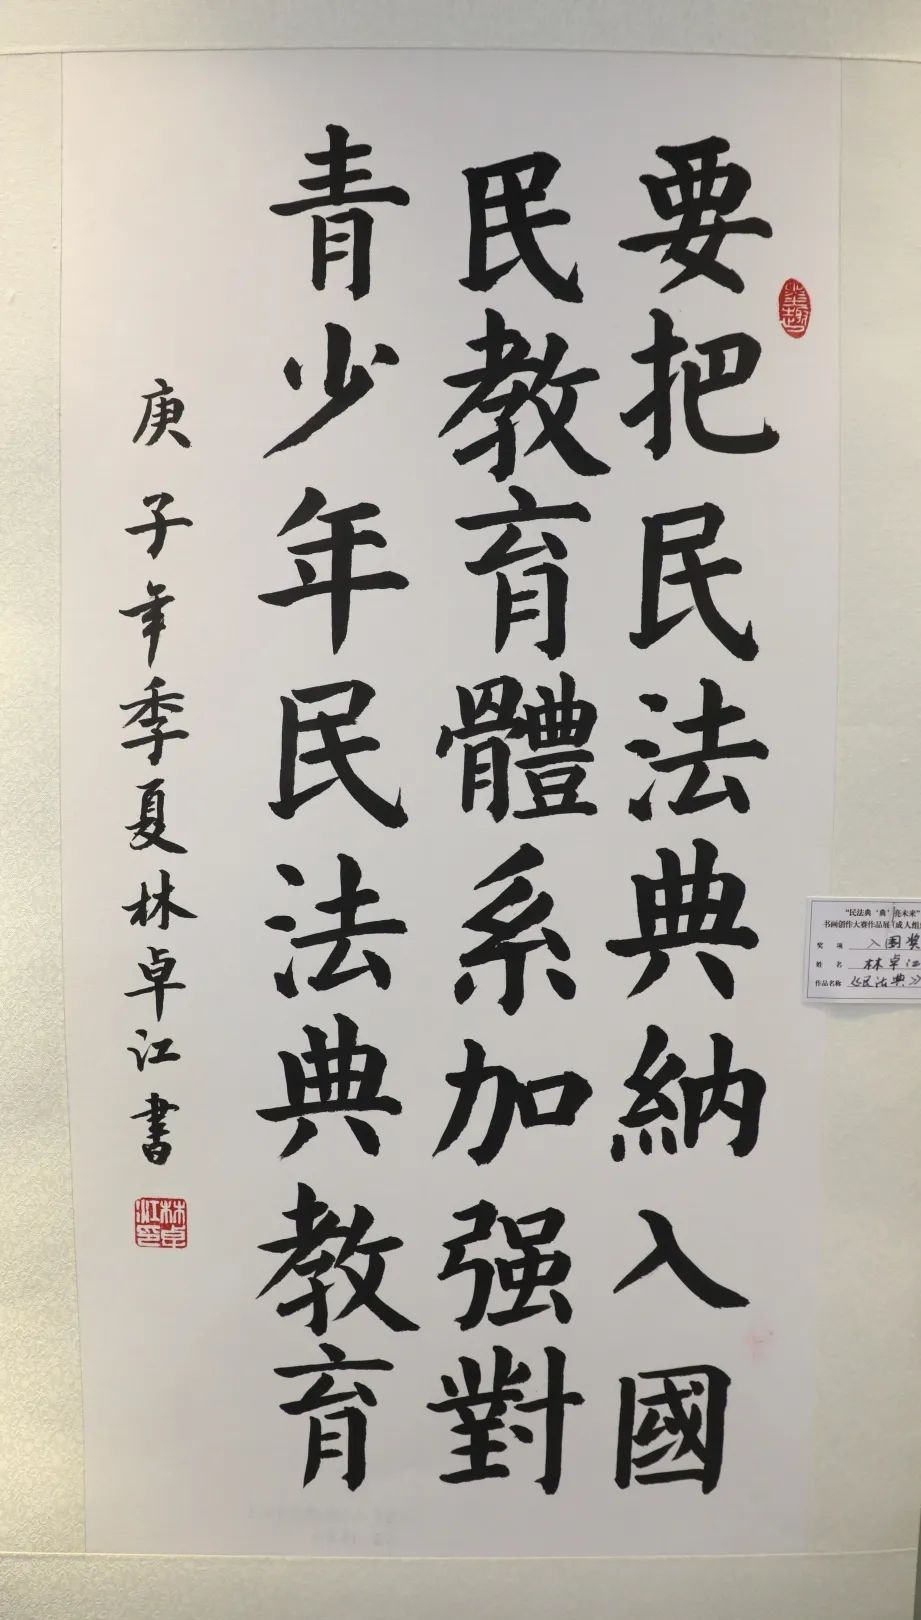 要把民法典納入國
民教育體系加强對
青少年民法典教育
庚子年季夏林卓江書
林卓江印
“民法典‘典’亮未来”
书画创作大赛作品展（成人组
奖 项 入围奖
姓 名 林卓江
作品名称 《民法典》